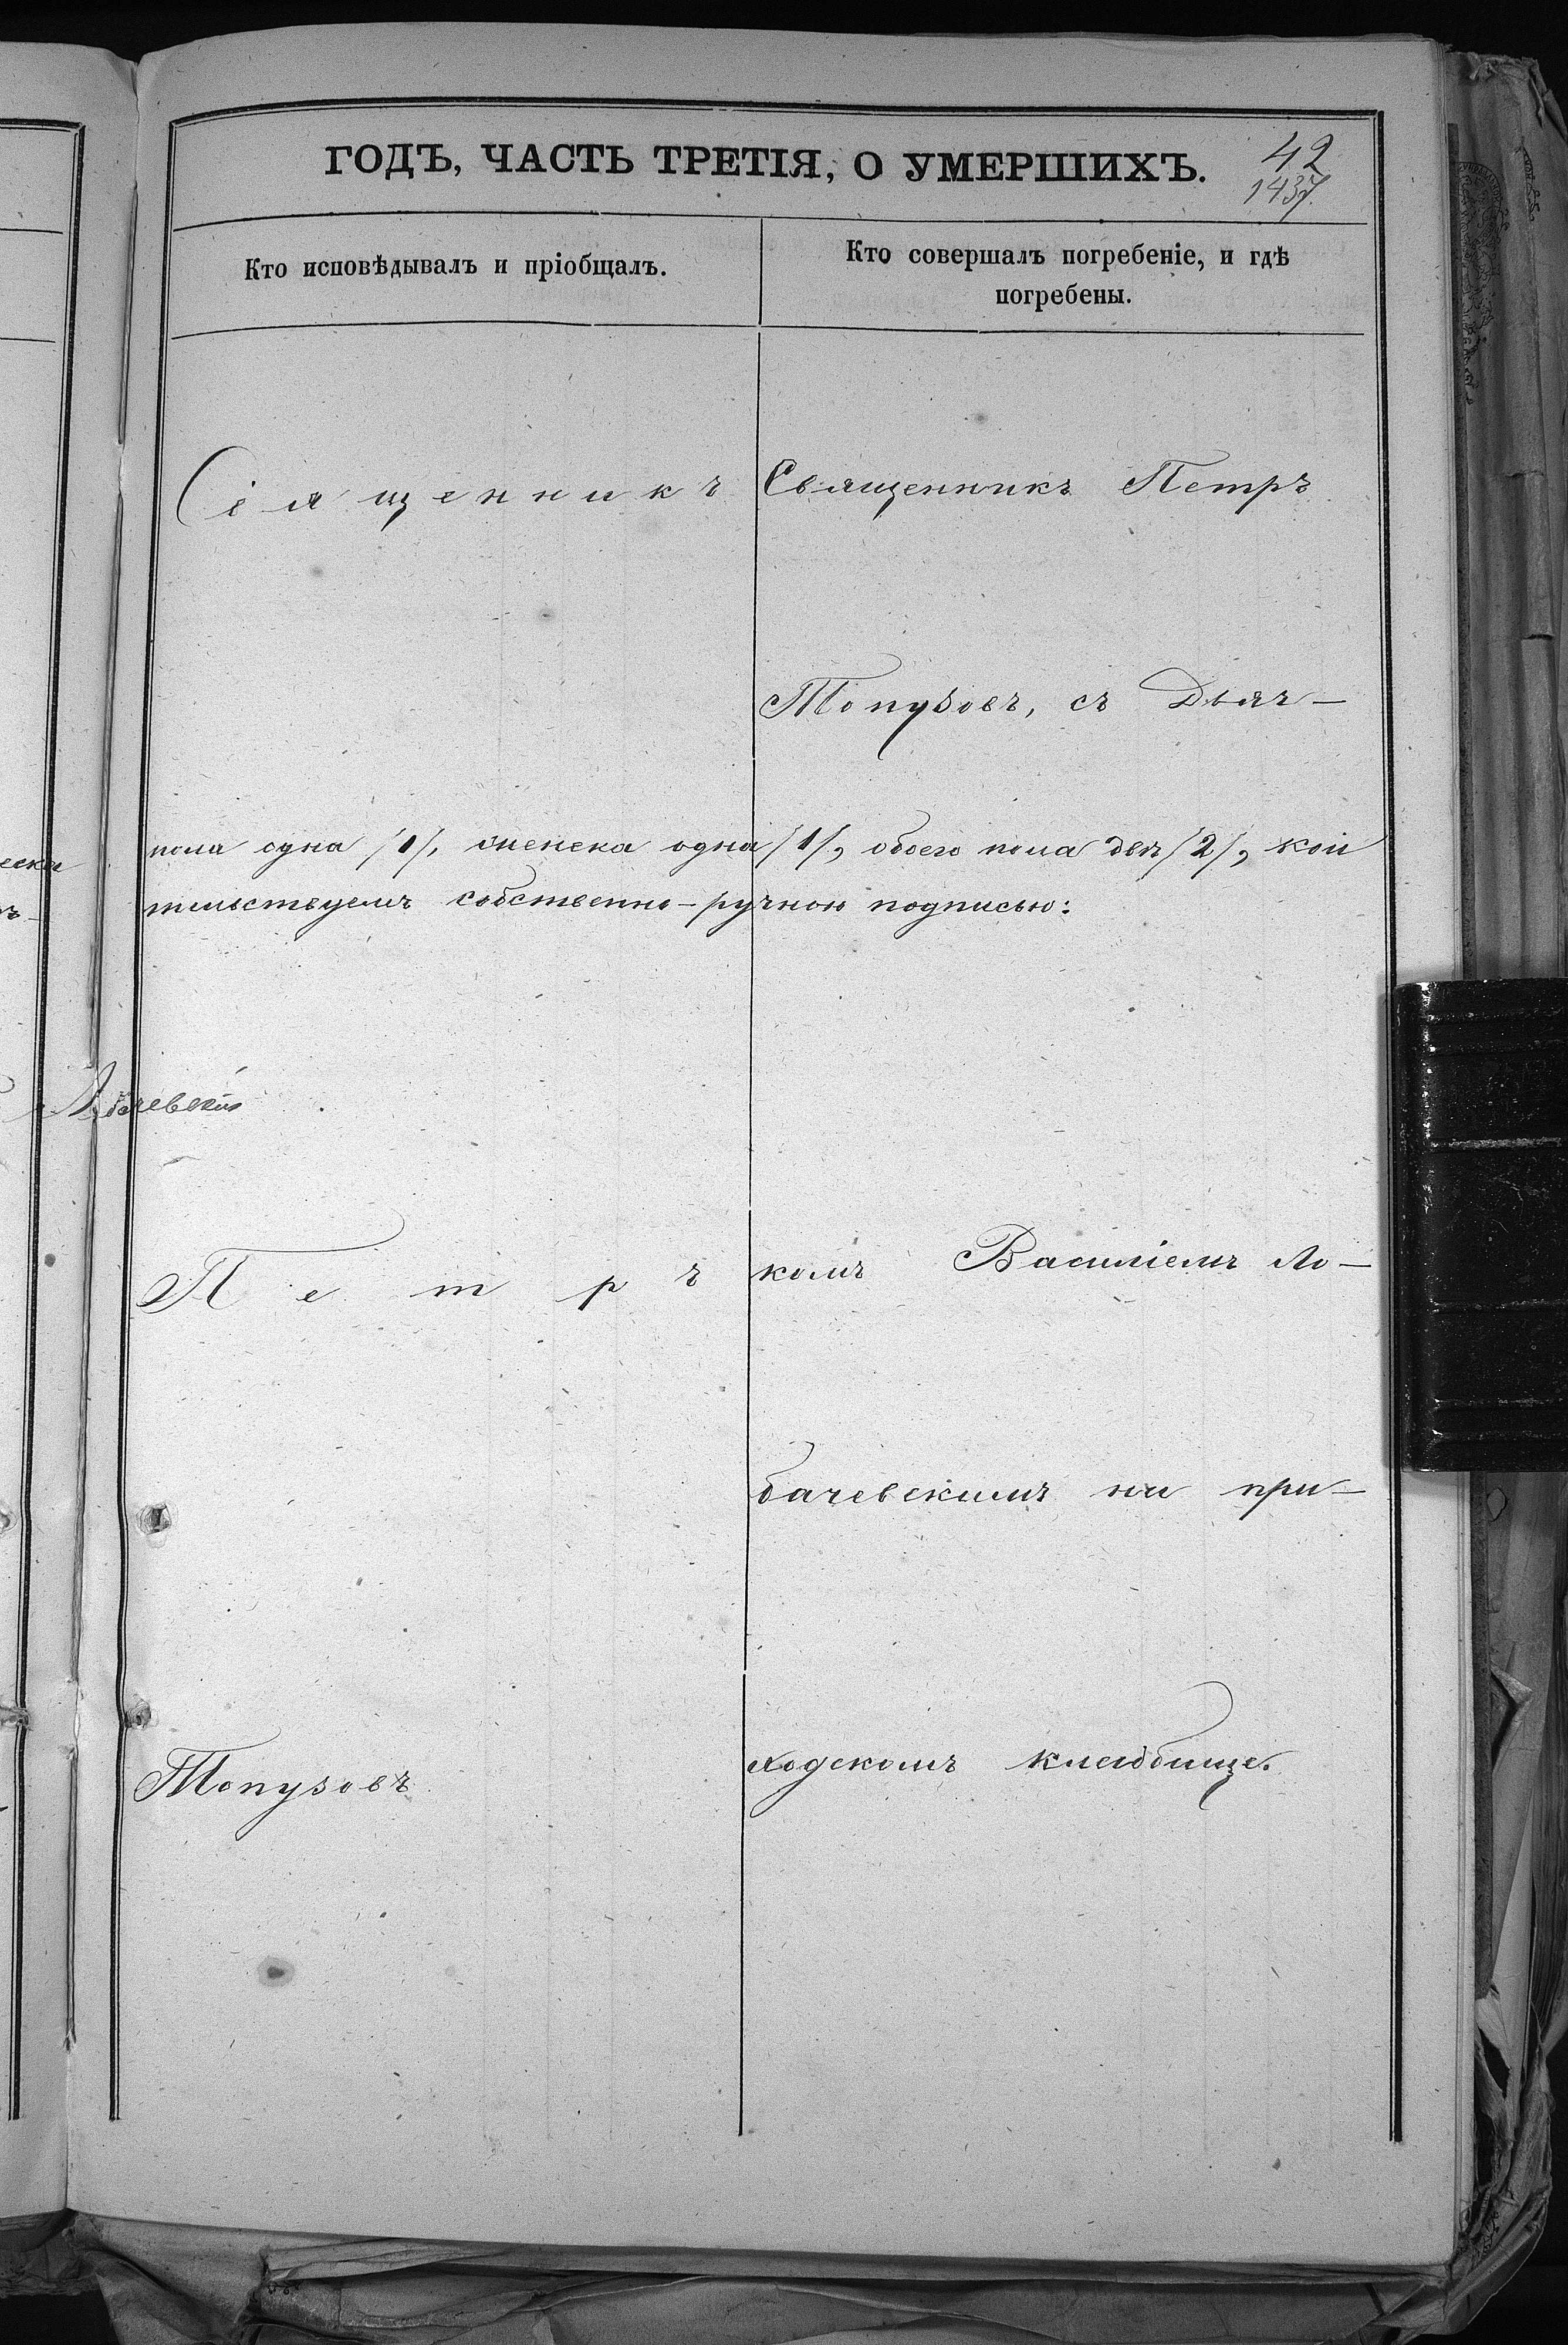 ГОДЪ, ЧАСТЬ ТРЕТІЯ, О УМЕРШИХЪ.
42
1437.
Кто исповѣдывалъ и пріобщалъ.
Кто совершалъ погребеніе, и гдѣ
погребены.
Священникъ
Священникъ Петръ
Топузовъ, съ Дьяч-
пола одна /1/, женска одна /1/, обоего пола двѣ /2/, кои
тельствуемъ собственно-ручною подписью:
Петръ
комъ Василіемъ Ло-
бачевскимъ на при-
Топузовъ
ходскомъ кладбище.